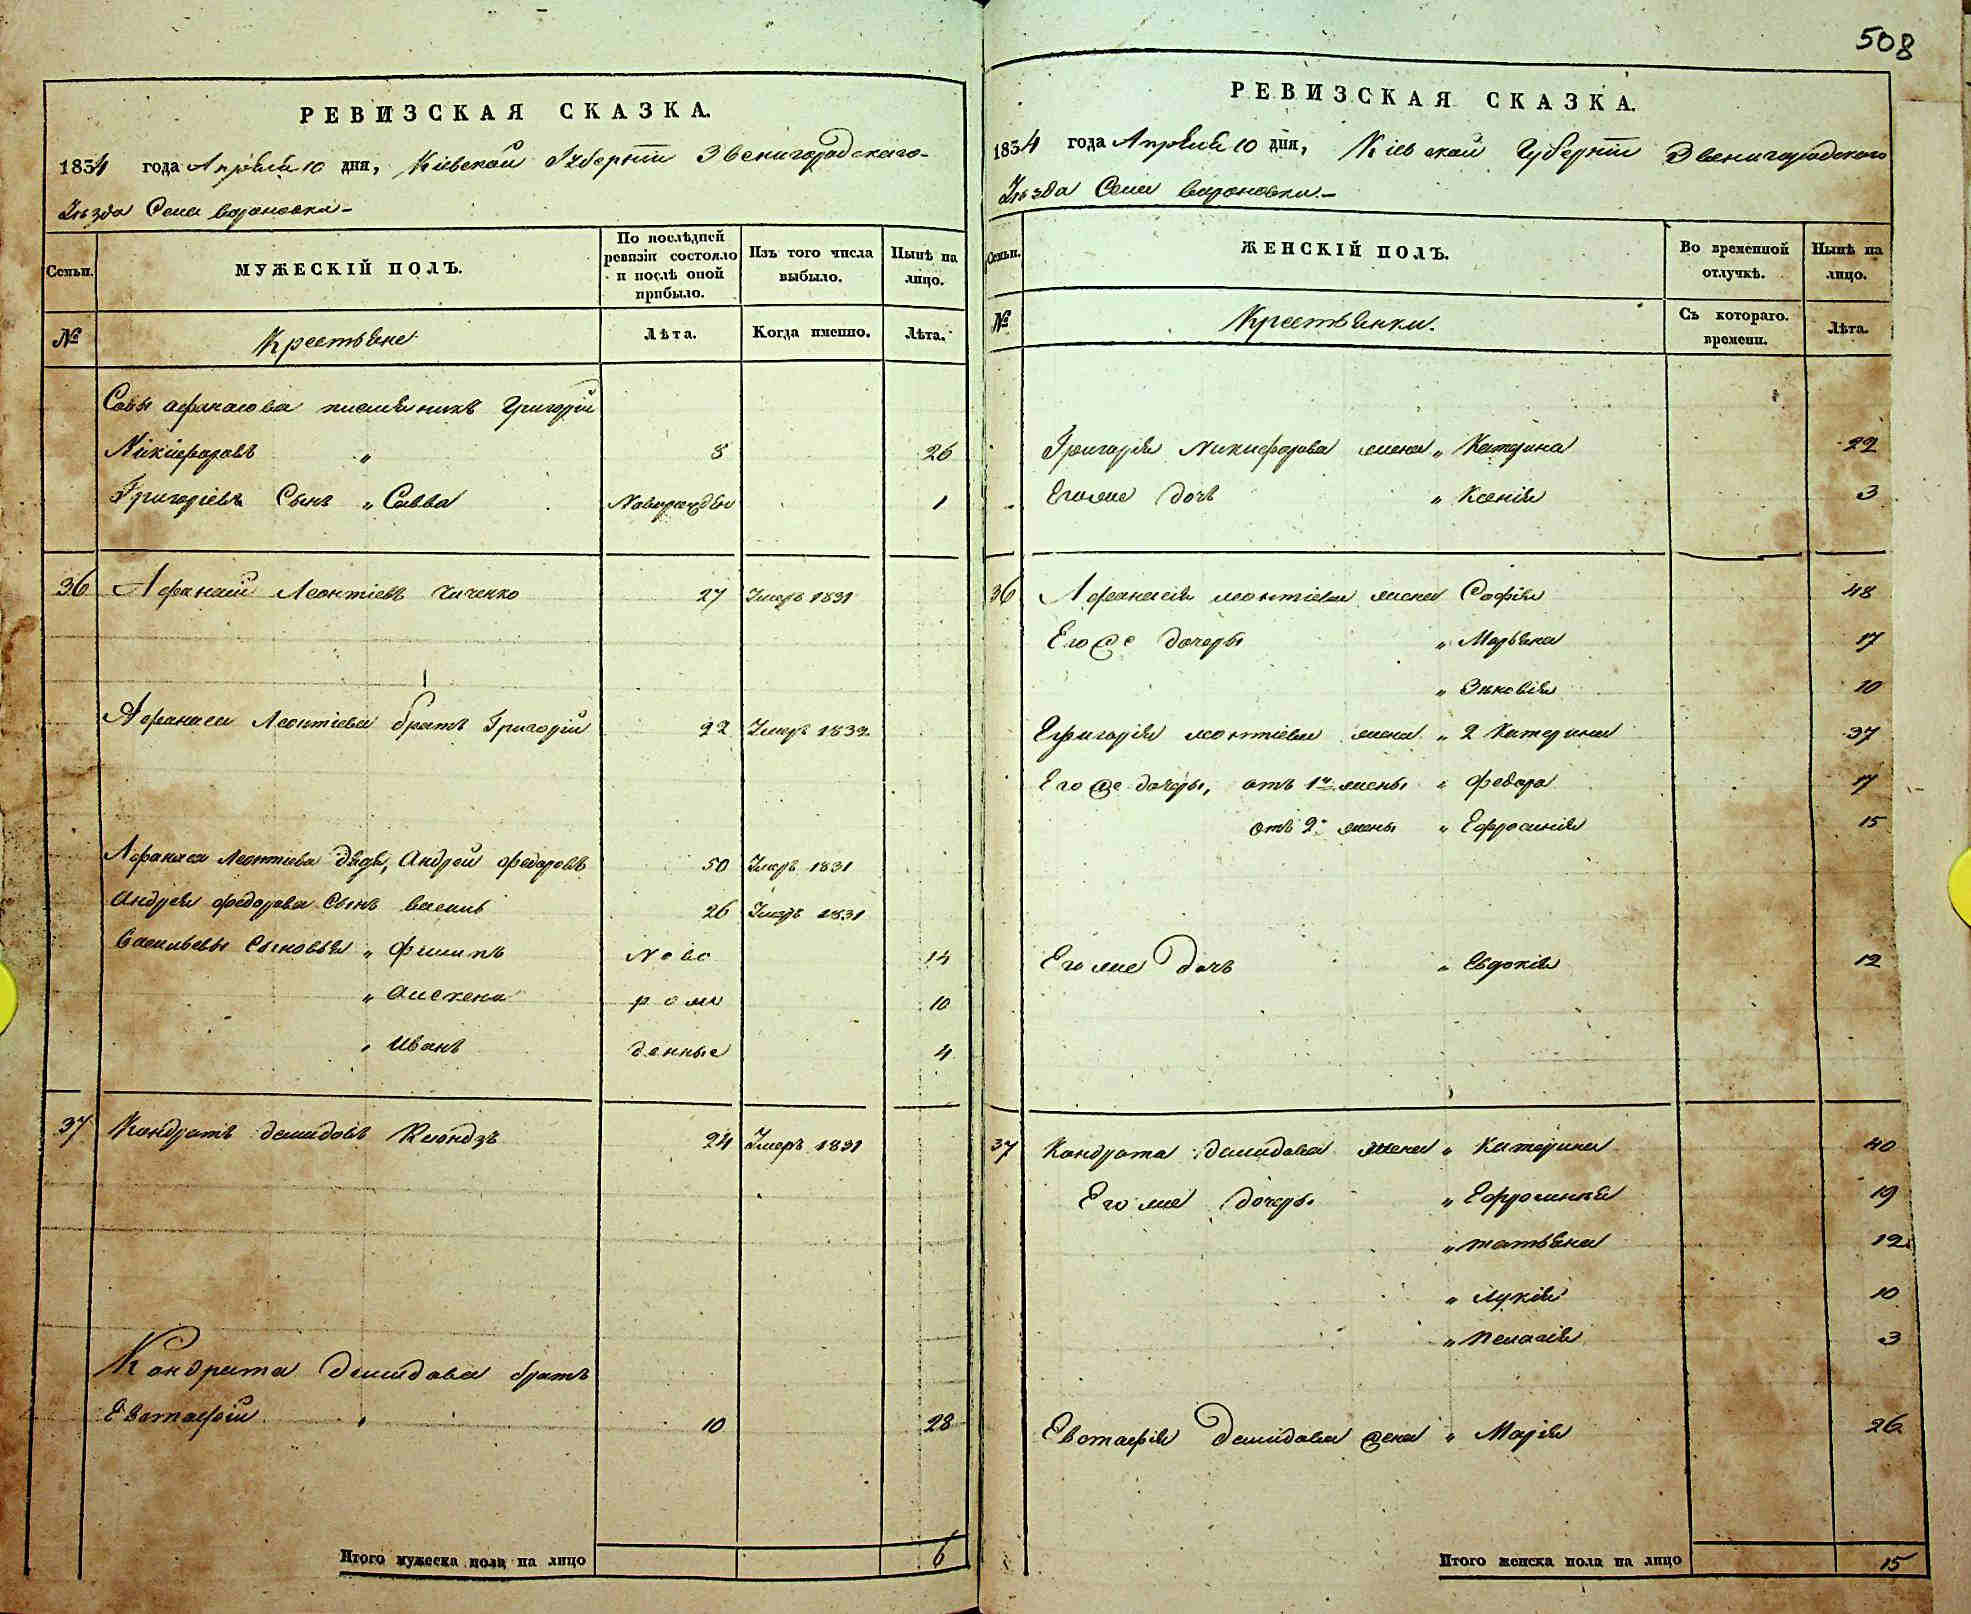 508
РЕВИЗСКАЯ СКАЗКА.
1834 года Апрѣля 10 дня, Кіевской Губерніи Звенигородскаго
Уѣзда Села Вороновки
Семьи.
МУЖЕСКІЙ ПОЛЪ.
По послѣдней ревизіи состояло и послѣ оной прибыло.
Изъ того числа выбыло.
Нынѣ на лицо.
№
Крестьяне
Лѣта.
Когда именно.
Лѣта.
Савы Афанасова племянникъ Григорій
Никифоровъ " 8 26
Григоріевъ Сынъ " Савва Новорожден 1
36 Афанасій Леонтіевъ Чиченко 27 Умеръ 1831
Афанасия Леонтіева братъ Григорій 22 Умеръ 1832
Афанасия Леонтиева дядя, Андрей Федоровъ 50 Умеръ 1831
Андрея Федорова Сынъ Василь 26 Умеръ 1831
Васильевы Сыновья " Филипъ Ново 14
" Алексей рож 10
" Иванъ денные 4
37 Кондратъ Демидовъ 24 Умеръ 1831
Кондрата Демидова братъ
Евстафій " 10 28
Итого мужеска пола на лицо 6
РЕВИЗСКАЯ СКАЗКА.
1834 года Апрѣля 10 дня, Кіевской Губерніи Звенигородского
Уѣзда Села Вороновки.
Семьи.
ЖЕНСКІЙ ПОЛЪ.
Во временной отлучкѣ.
Нынѣ на лицо.
№
Крестьянки.
Съ котораго. времени.
Лѣта.
Григорія Никифорова жена " Катерина 22
Егоже дочь " Ксенія 3
36 Афанасія Леонтіева жена Софія 48
Егоже дочеры " Марьяна 17
" Зиновія 10
Григорія Леонтіева жена " 2 Катерина 37
Егоже дочеры, отъ 1й жены " Федора 17
отъ 2й жены " Ефросинія 15
Егоже дочь " Евдокія 12
37 Кондрата Демидова жена " Катерина 40
Егоже дочеры " Ефросинія 19
" Татьяна 12
" Лукія 10
" Пелагія 3
Евстафія Демидова жена " Марія 26
Итого женска пола на лицо 15